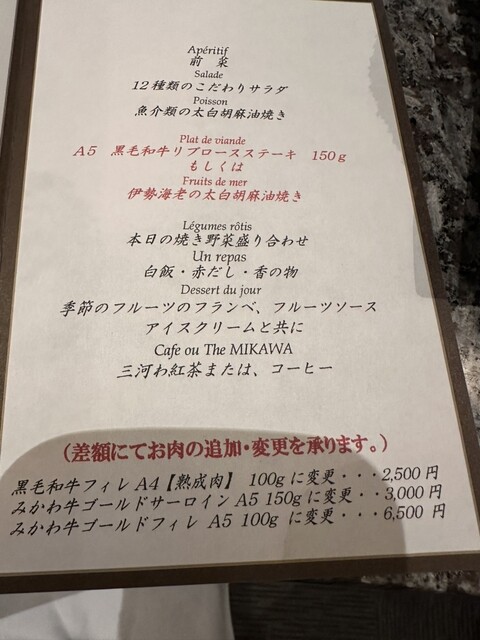 Apéritif
前 菜
Salade
12種類のこだわりサラダ
Poisson
魚介類の太白胡麻油焼き
Plat de viande
A5 黒毛和牛リブロースステーキ 150g
もしくは
Fruits de mer
伊勢海老の太白胡麻油焼き
Légumes rôtis
本日の焼き野菜盛り合わせ
Un repas
白飯・赤だし・香の物
Dessert du jour
季節のフルーツのフランベ、フルーツソース
アイスクリームと共に
Cafe ou The MIKAWA
三河わ紅茶または、コーヒー
(差額にてお肉の追加・変更を承ります。)
黒毛和牛フィレ A4【熟成肉】 100g に変更・・・2,500 円
みかわ牛ゴールドサーロイン A5 150g に変更・・・3,000 円
みかわ牛ゴールドフィレ A5 100g に変更・・・6,500 円